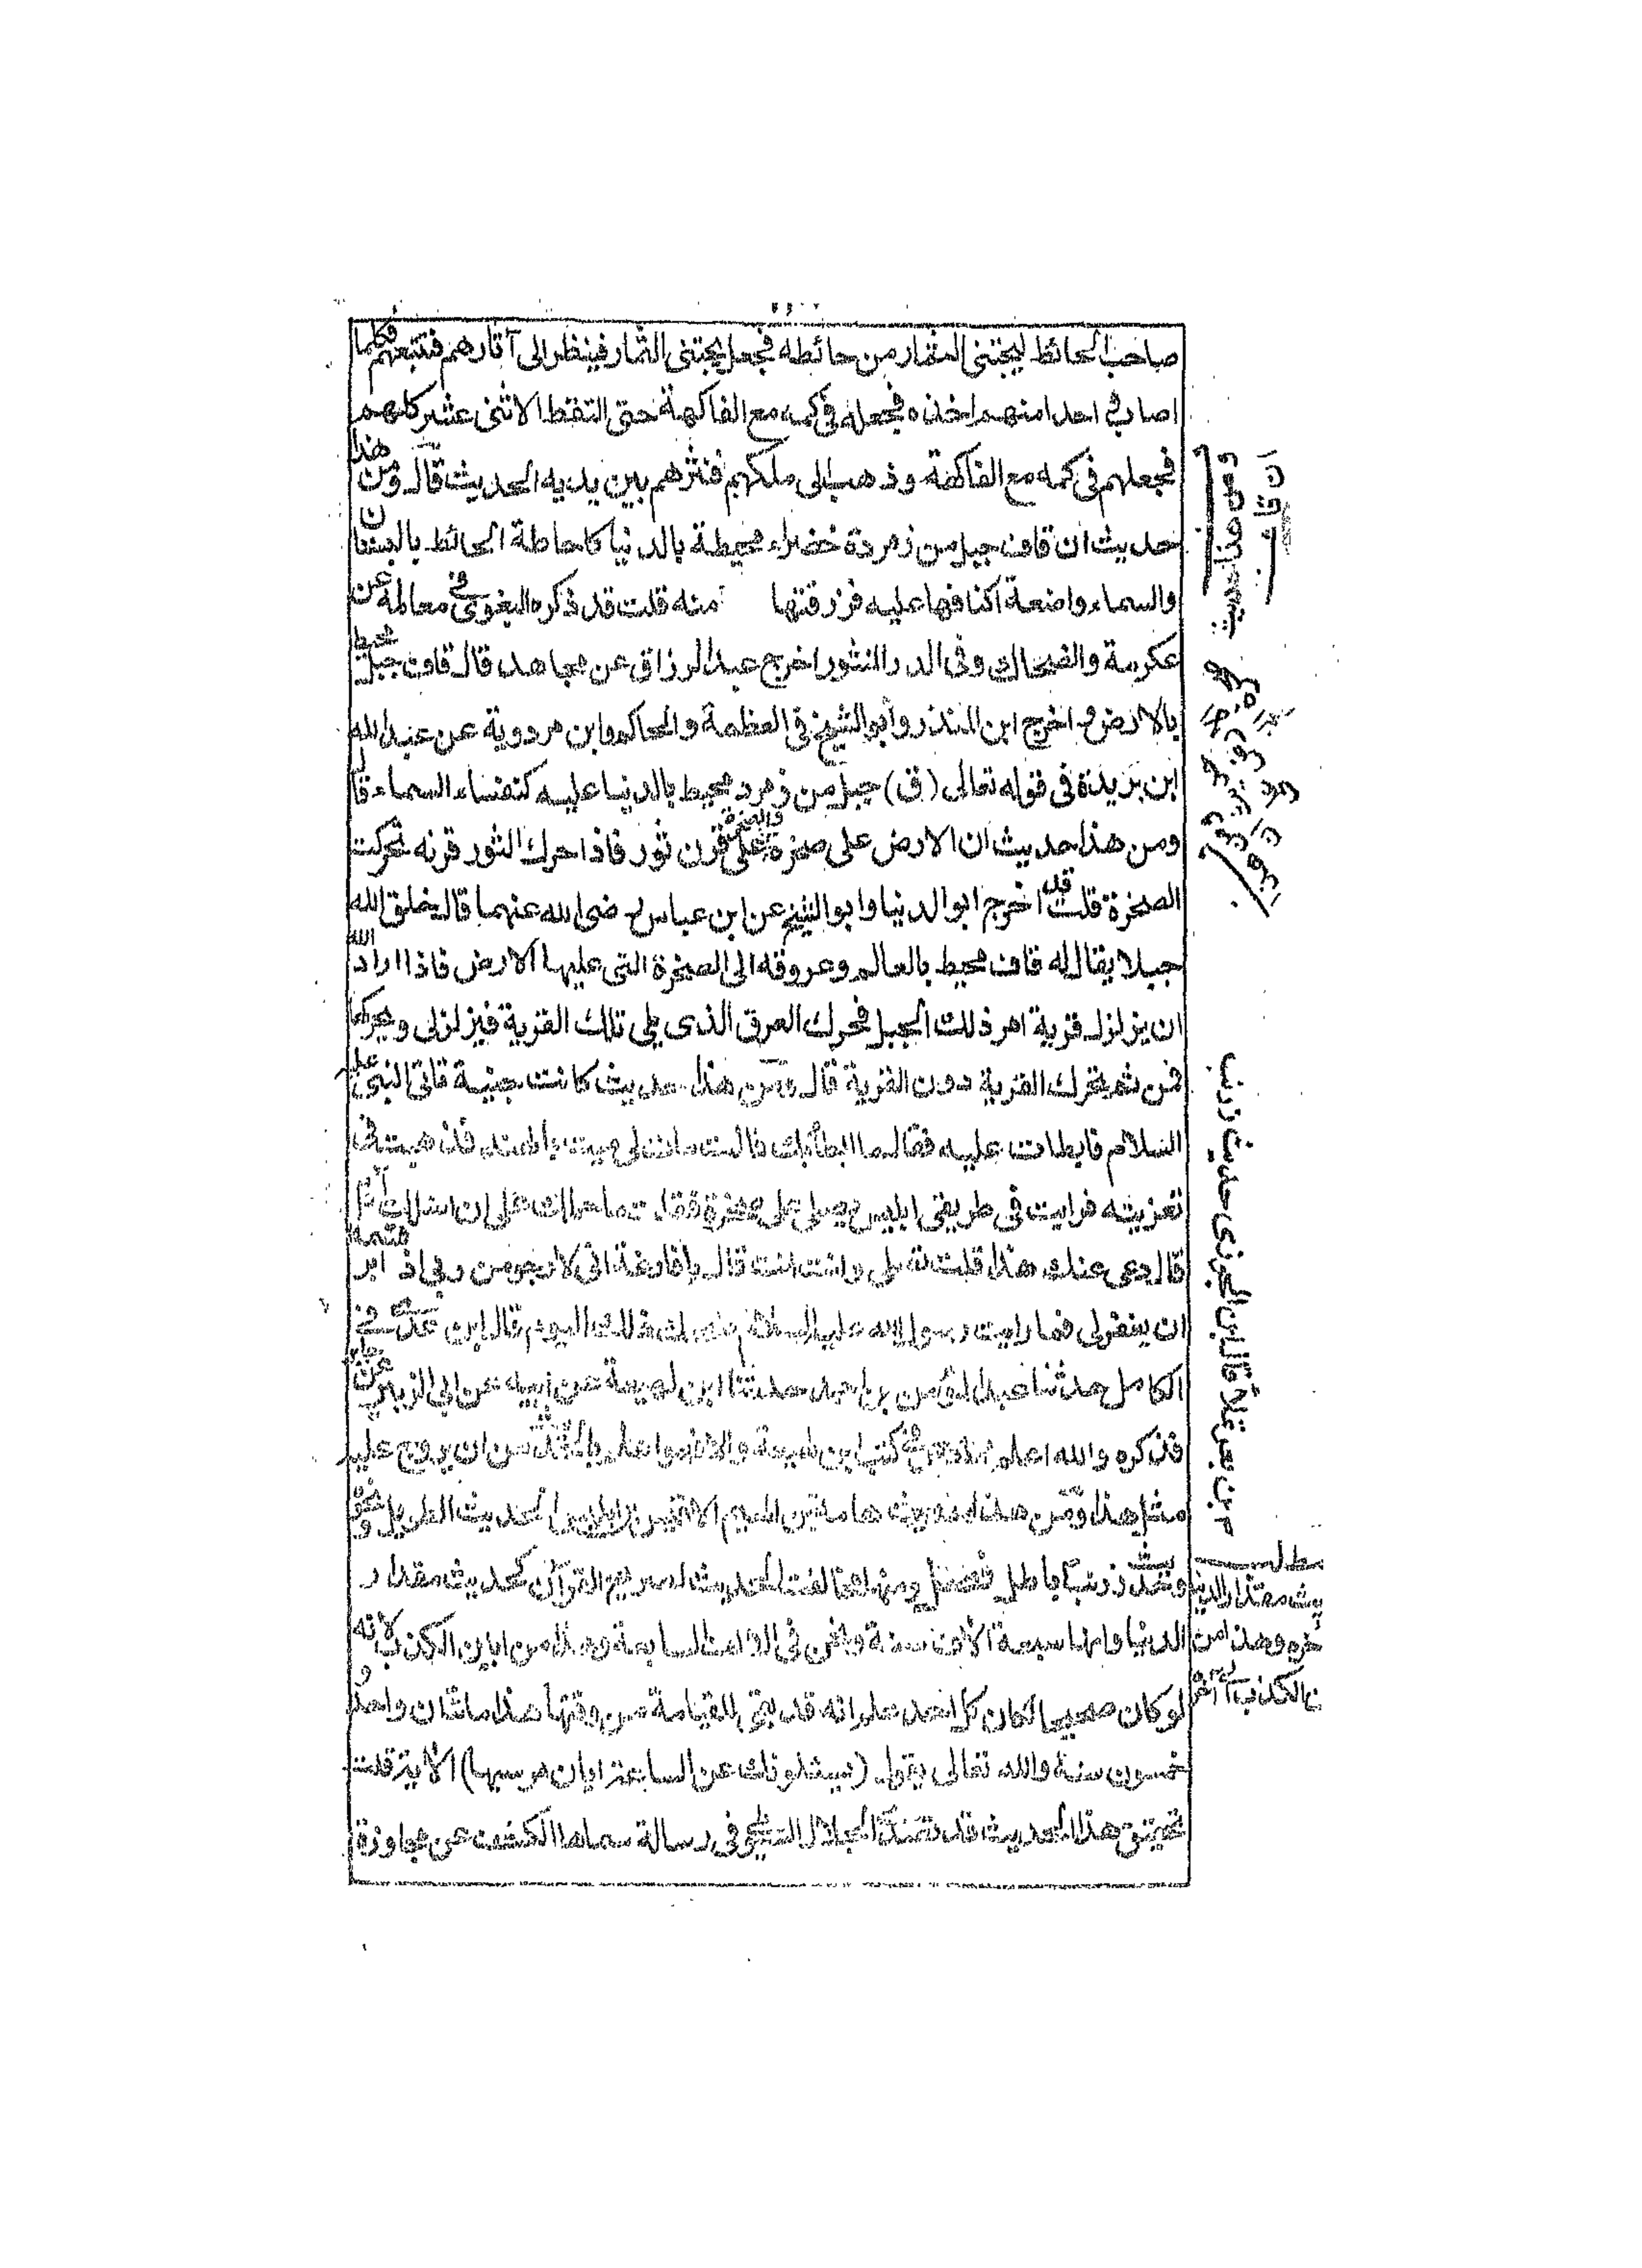 صاحب الحائط ليجتني الثمار من حائطه فجعل يجتني الثمار فينظر الى آثارهم فتتبعهم فكلما
اصاب احدا منهم اخذه فجعله في كمه مع الفاكهة حتى التقط الاثنى عشر كلهم
فجعلهم في كمه مع الفاكهة وذهب الى ملكهم فنثرهم بين يديه الحديث قال ومن هذا
حديث ان قاف جبل من زمردة خضراء محيطة بالدنيا كاحاطة الحائط بالبستان
والسماء واضعة اكنافها عليه فزرقتها منه قلت قد ذكره البغوى في معالمه عن
عكرمة والضحاك وفى الدر المنثور اخرج عبدالرزاق عن مجاهد قال قاف جبل محيط
بالارض و اخرج ابن المنذر وأبو الشيخ في العظمة والحاكم وابن مردوية عن عبد الله
ابن بريدة فى قوله تعالى (ق) جبل من زمرد محيط بالدنيا عليه كتفاء السماء قال
ومن هذا حديث ان الارض على صخرة والصخرة على قرن ثور فاذا حرك الثور قرنه تحركت
الصخرة قلت قد اخرج ابو الدنيا وابو الشيخ عن ابن عباس رضى الله عنهما قال خلق الله
جبلا يقال له قاف محيط بالعالم وعروقه الى الصخرة التى عليها الارض فاذا اراد الله
ان يزلزل قرية امر ذلك الجبل فحرك العرق الذى يلى تلك القرية فيزلزلى ويحركها
فمن ثم تحرك القرية دون القرية قال ومن هذا حديث كانت جنية تأتى النبى عليه
السلام فابطات عليه فقال ما ابطأبك قالت مات لى ميت بالهند فذهبت فى
تعزيته فرايت فى طريقى ابليس يصلى على صخرة فقلت ما حملك على ان اضللت آدم
قال دعى عنك هذا قلت تصلى وانت انت قال يا فارغة انى لارجو من ربى اذ ابر قسمه
ان يغفرلى فما رايت رسول الله عليه السلام ضحك ذلك اليوم قال ابن عدى فى
الكامل حدثنا عبد المؤمن بن احمد حدثنا ابن لهيعة عن ابيه عن ابى الزبير عن جابر
فذكره والله اعلم كتب ابن لهيعة والا فهو اعلم بالله من ان يروج عليه
مثل هذا ومن هذا حديث هامة بن الهيم بن ابليس الحديث الطويل ونحوه
وحديث زرنب باطل فصل ومنها مخالفة الحديث لصريح القرآن كحديث مقدار
الدنيا وانها سبعة آلاف سنة ونحن فى الالف السابعة وهذا من ابين الكذب لانه
لو كان صحيحا لكان كل احد علم انه قد بقى للقيامة من وقتها هذا ماتان واحد و
خمسون سنة والله تعالى يقول (يسئلونك عن الساعة ايان مرسيها) الآية قلت
تحقيق هذا الحديث قد تصدى الجلال السيوطى فى رسالة سماها الكشف عن مجاوزة
حديث زرنب
قال ابن الجوزى
مطلب
يث مقدار الدنيا
خره وهذا من